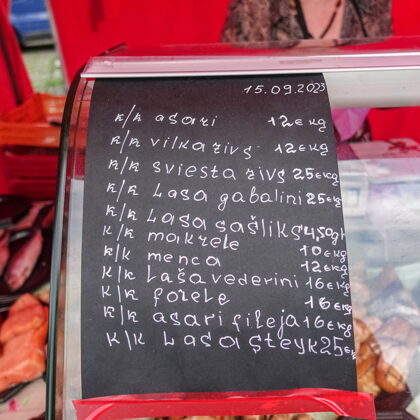 15.09.2023
k/k asari 12€kg
k/k vilkazivs 12€kg
k/k sviesta zivs 25€kg
k/k Lasa gabalini 25€kg
k/k Lasa sašliks 4,50gb
k/k makrele 10€kg
k/k menca 12€kg
k/k Laša vederini 16€kg
k/k forele 16€kg
k/k asari fileja 16€kg
k/k Lasa steyk 25€